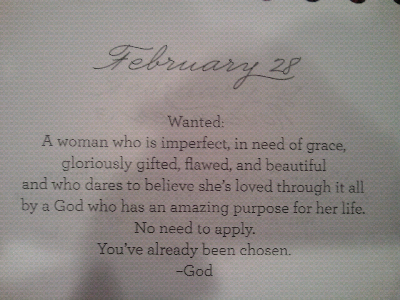 February 28
Wanted:
A woman who is imperfect, in need of grace,
gloriously gifted, flawed, and beautiful
and who dares to believe she's loved through it all
by a God who has an amazing purpose for her life.
No need to apply.
You've already been chosen.
–God